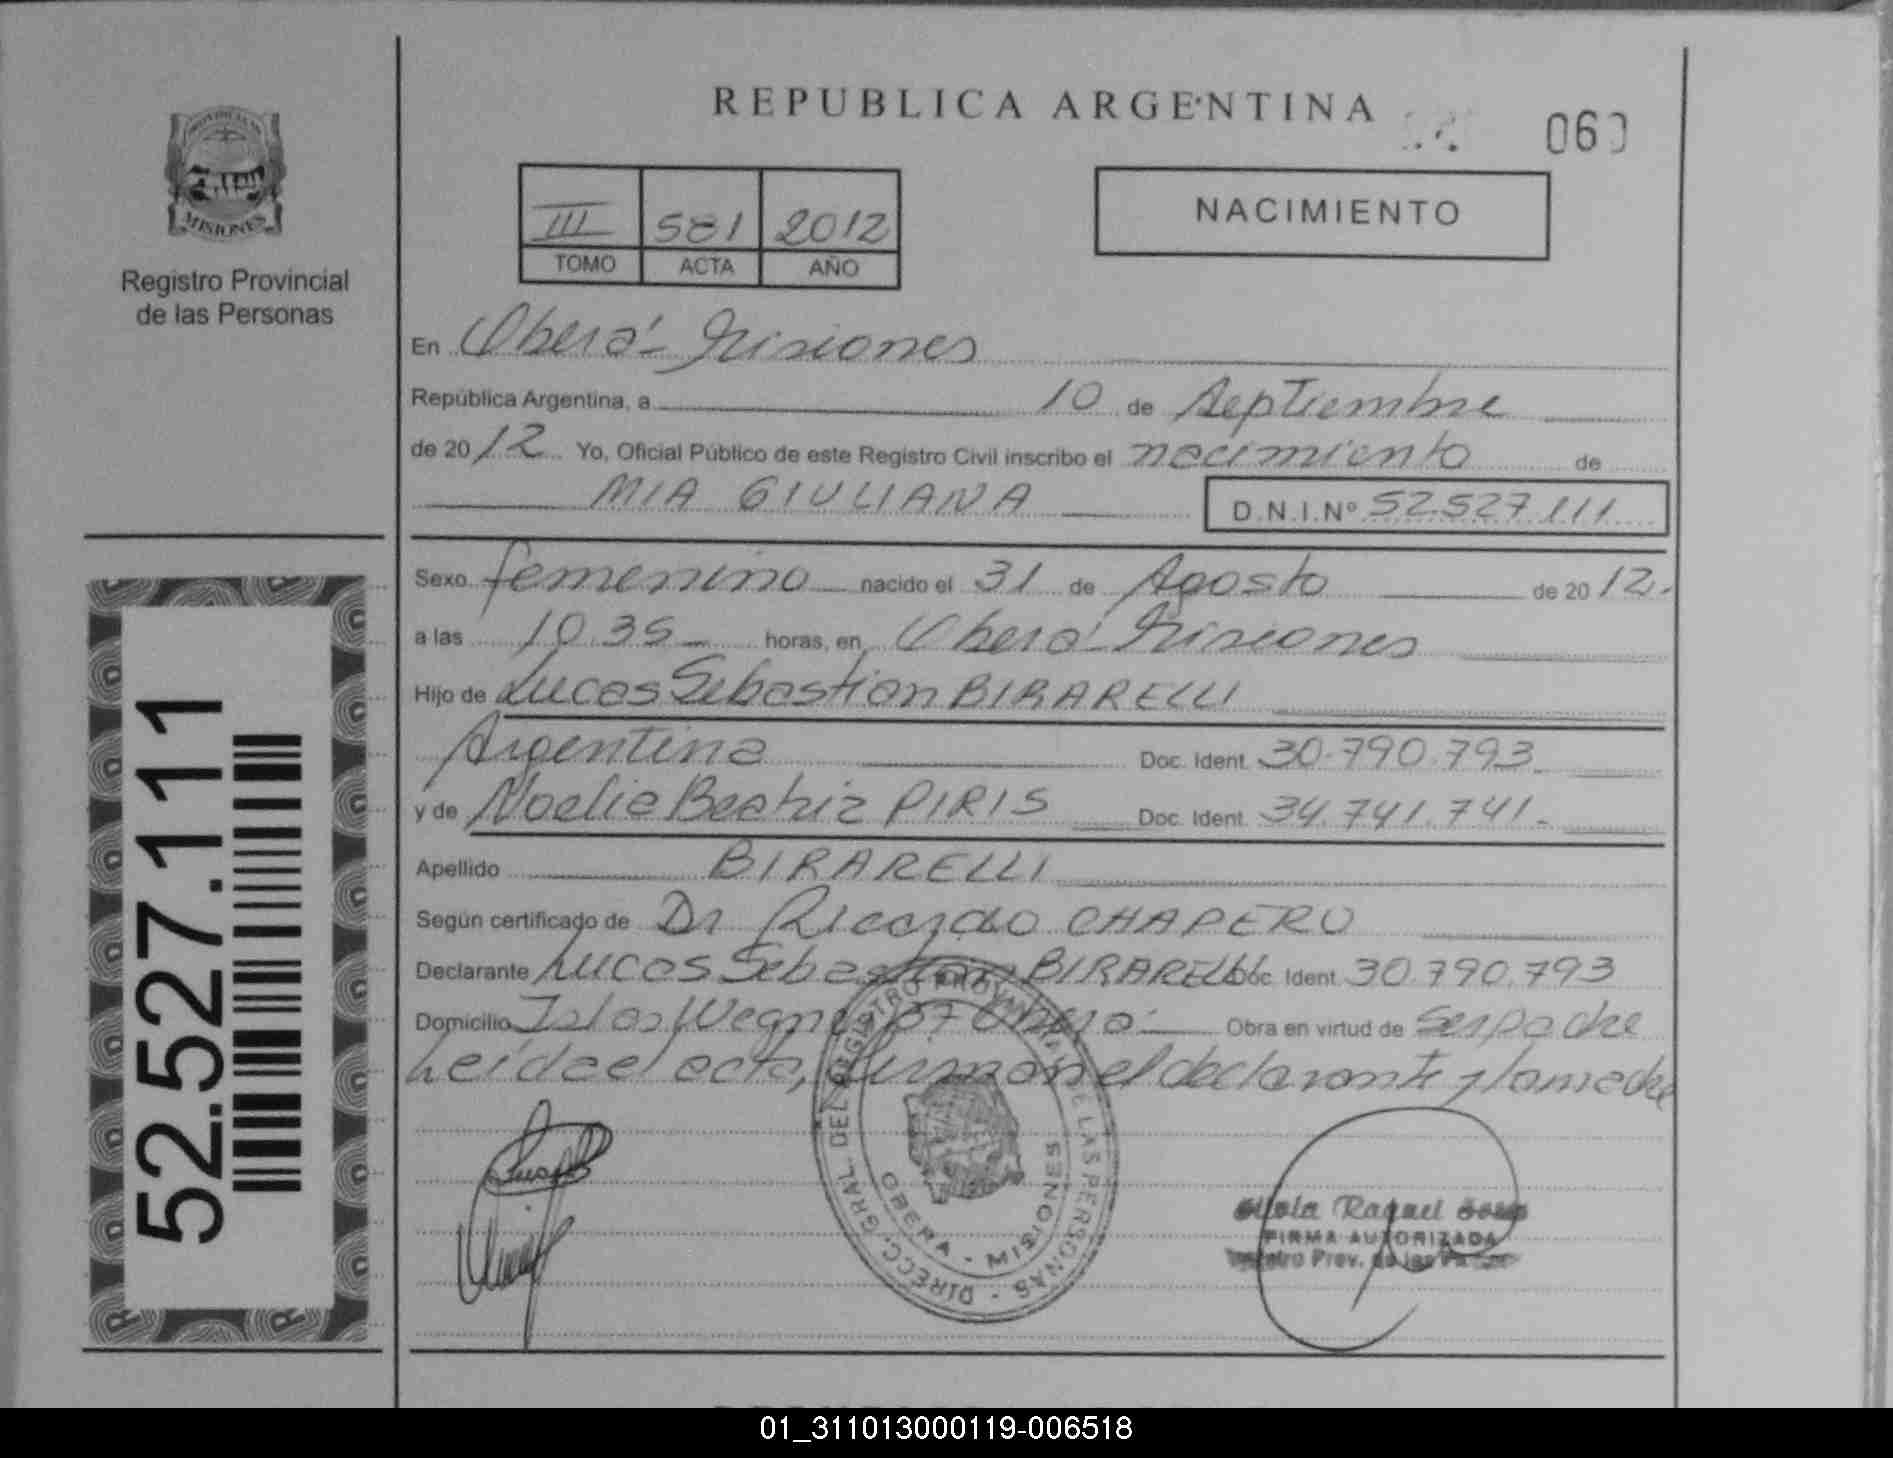 REPUBLICA ARGENTINA
060
PROVINCIA DE
MISIONES
Registro Provincial
de las Personas
III 581 2012
TOMO ACTA AÑO
NACIMIENTO
En Oberá - Misiones
República Argentina, a 10 de Septiembre
de 2012 Yo, Oficial Público de este Registro Civil inscribo el nacimiento de
MIA GIULIANA D.N.I.Nº 52.527.111
Sexo femenino nacido el 31 de Agosto de 2012.
a las 10.35 horas, en Oberá - Misiones
Hijo de Lucas Sebastian BIRARELLI
Argentina Doc. Ident. 30.790.793
y de Noelia Beatriz PIRIS Doc. Ident. 34.741.741.
Apellido BIRARELLI
Según certificado de Dr Ricardo CHAPERO
Declarante Lucas Sebastian BIRARELLI Doc. Ident. 30.790.793
Domicilio Islas Wegner Oberá Obra en virtud de Ser padre
Leída el acta, firman el declarante y la madre
DIRECC. GRAL. DEL REGISTRO PROVINCIAL DE LAS PERSONAS
OBERA - MISIONES
Raquel
FIRMA AUTORIZADA
Prov. de las
52.527.111
01_311013000119-006518